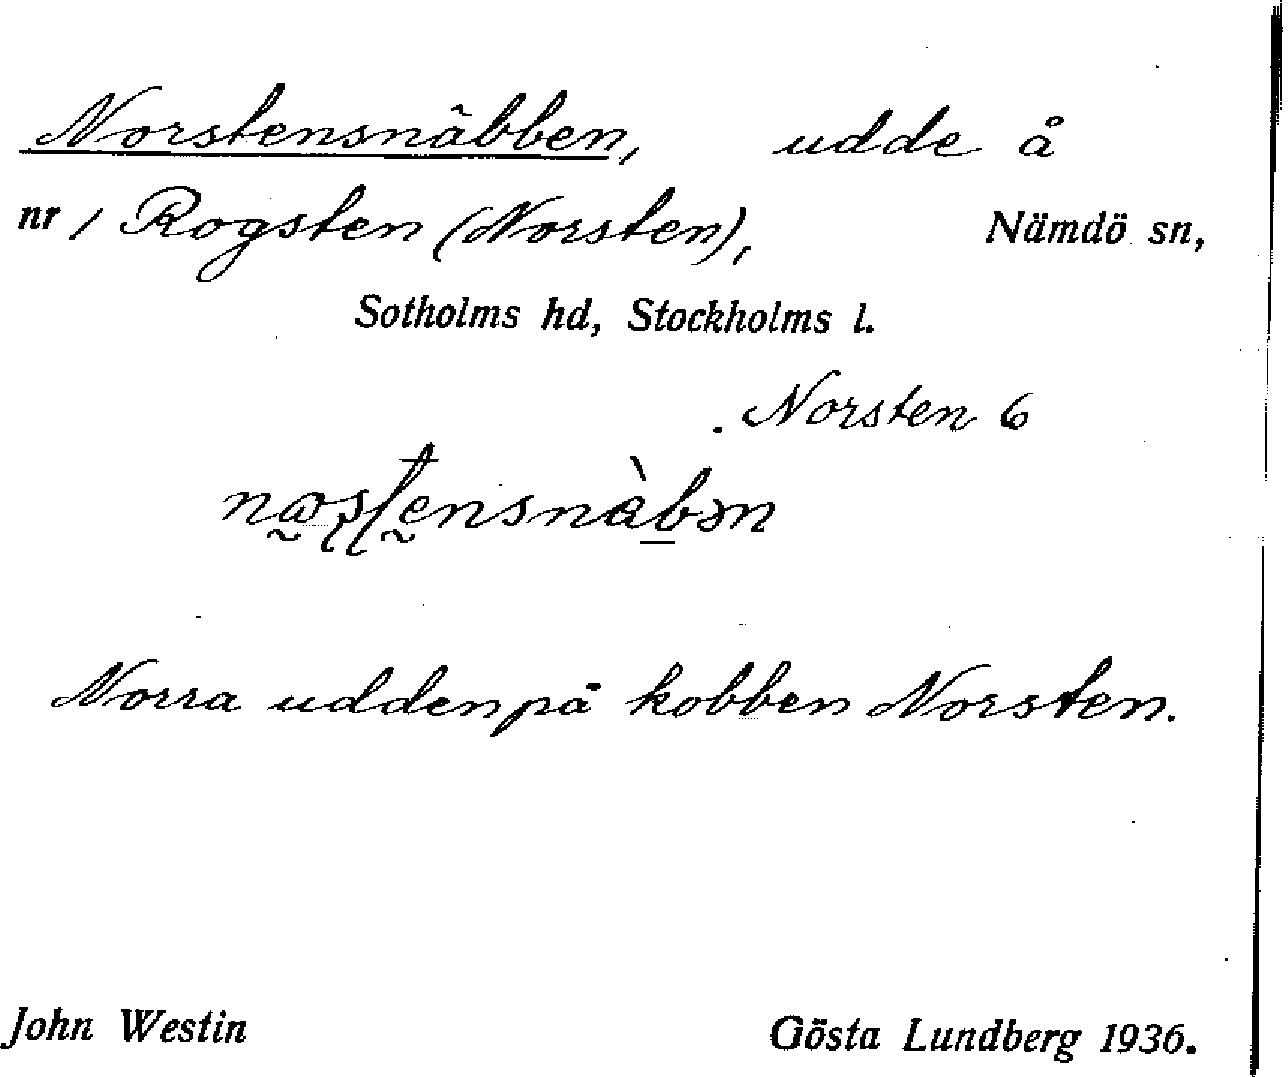 Norstensnäbben, udde å
nr 1 Rogsten (Norsten), Nämdö sn,
Sotholms hd, Stockholms l.
Norsten 6
Norra udden på kobben Norsten.
John Westin Gösta Lundberg 1936.